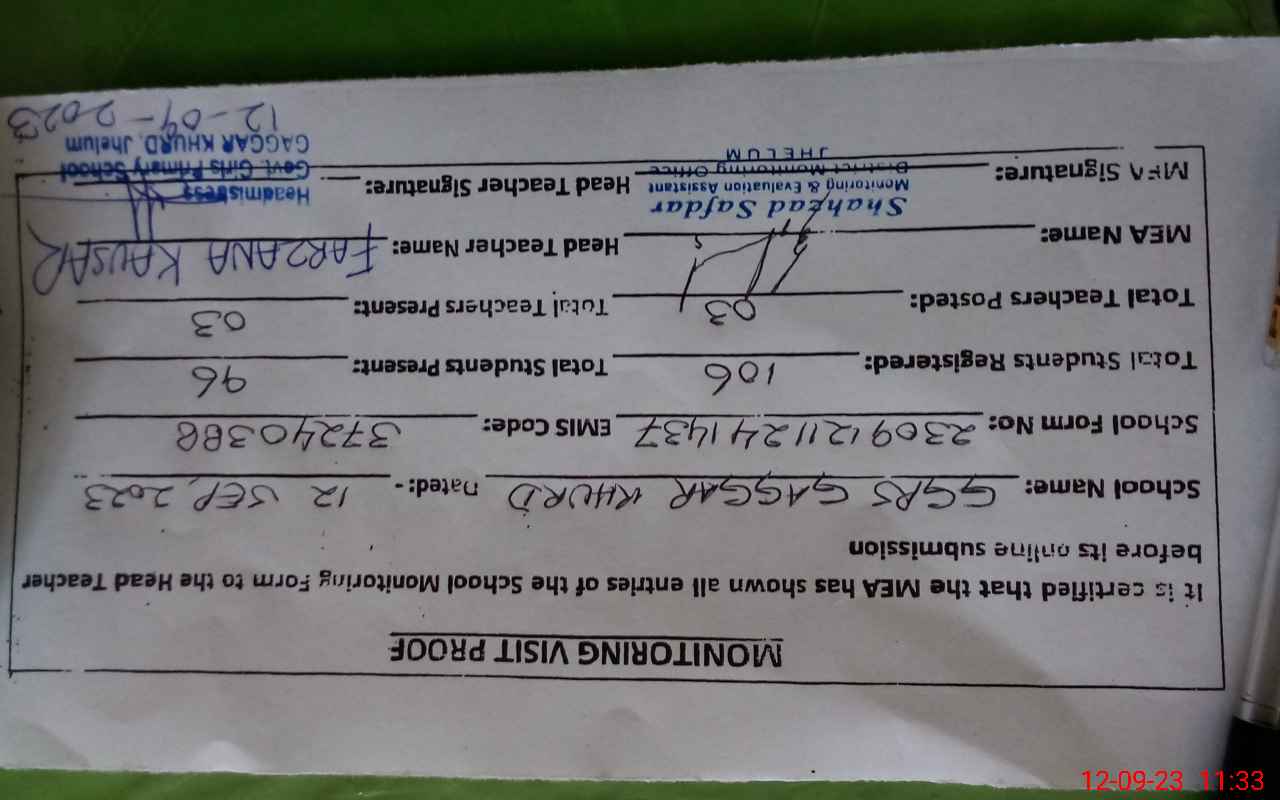 MONITORING VISIT PROOF
It is certified that the MEA has shown all entries of the School Monitoring Form to the Head Teacher
before its online submission
School Name: GGPS GAGGAR KHURD Dated:- 12 SEP, 2023
School Form No: 2309121124141437 EMIS Code: 37240388
Total Students Registered: 106 Total Students Present: 96
Total Teachers Posted: 03 Total Teachers Present: 03
MEA Name: Head Teacher Name: FARZANA KAUSAR
Shahzad Safdar
Monitoring & Evaluation Assistant
District Monitoring Office
JHELUM
MEA Signature: Head Teacher Signature:
Headmistress
Govt. Girls Primary School
GAGGAR KHURD, Jhelum
12-09-2023
12-09-23 11:33